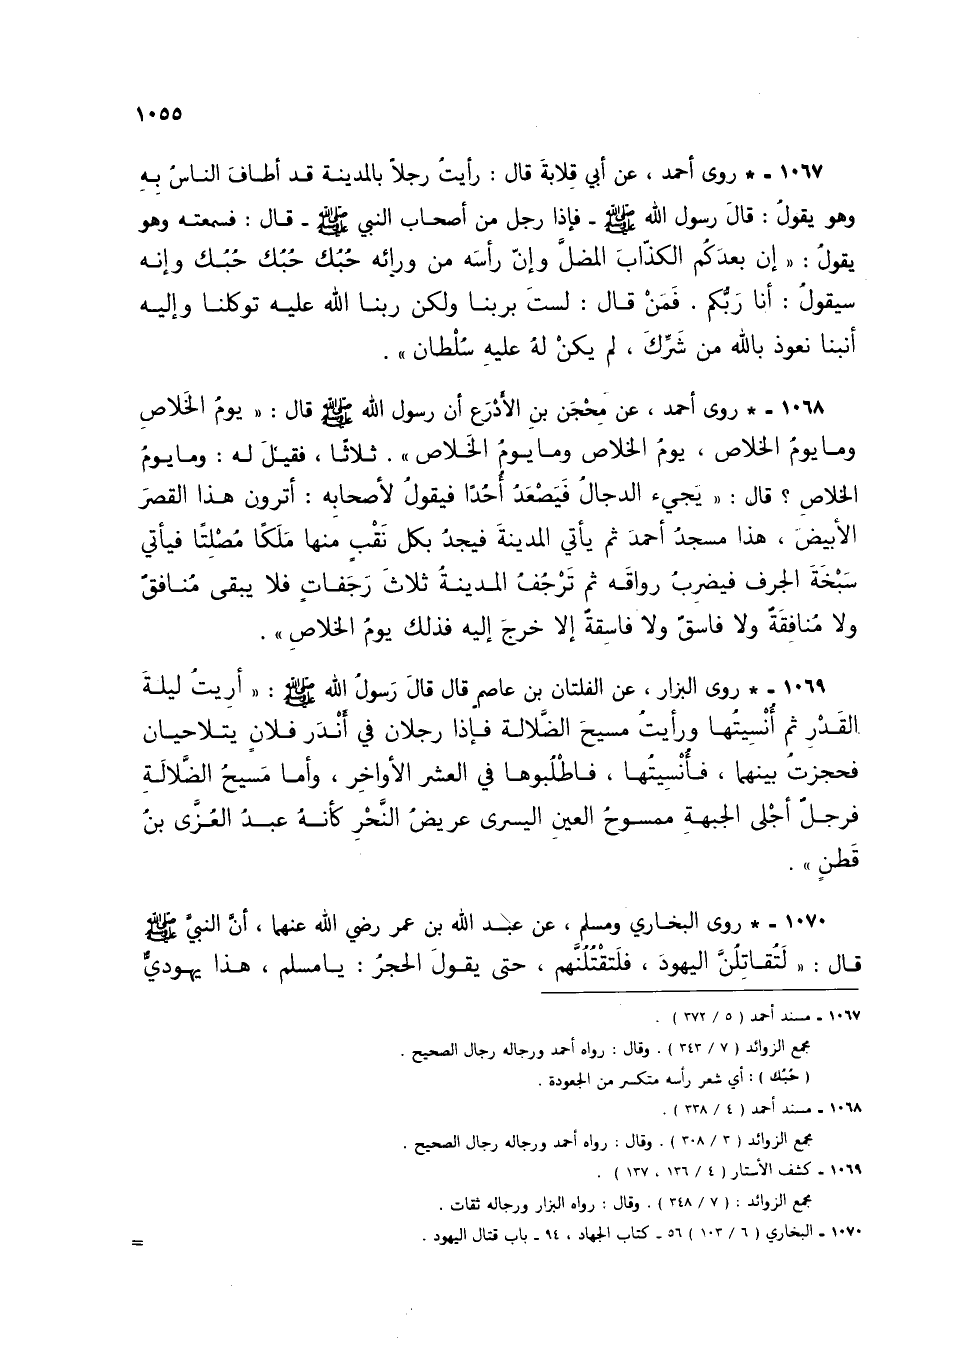 ١٠٥٥
١٠٦٧ - * روى أحمد ، عن أبي قِلابةَ قال : رأيتُ رجلاً بالمدينة قد أطافَ الناسُ بِهِ
وهو يقولُ : قالَ رسول الله ﷺ - فإذا رجل من أصحاب النبي ﷺ - قال : فسمعته وهو
يقولُ : « إن بعدَكُم الكذّابَ المضلَّ وإنّ رأسَه من ورائه حُبُك حُبُك حُبُك وإنه
سيقولُ : أنا رَبُّكم . فَمَنْ قال : لستَ بربنا ولكن ربنا الله عليه توكلنا وإليه
أنبنا نعوذ بالله من شَرِّكَ ، لم يكنْ لهُ عليهِ سُلْطان » .
١٠٦٨ - * روى أحمد ، عن مِحْجَن بنِ الأَدْرَعِ أن رسول الله ﷺ قال : « يومُ الخَلاصِ
ومايومُ الخلاص ، يومُ الخلاص ومايومُ الخَلاص » . ثلاثًا ، فقيلَ له : ومايومُ
الخلاصِ ؟ قال : « يَجيء الدجالُ فَيَصْعَدُ أُحُدًا فيقولُ لأصحابه : أترون هذا القصرَ
الأبيضَ ، هذا مسجدُ أحمدَ ثم يأتي المدينةَ فيجدُ بكل نَقْبٍ منها مَلَكًا مُصْلِتًا فيأتي
سَبْخَةَ الجرف فيضربُ رواقَه ثم تَرْجُفُ المدينةُ ثلاثَ رَجَفاتٍ فلا يبقى مُنافقٌ
ولا مُنافِقَةٌ ولا فاسقٌ ولا فاسقةٌ إلا خرجَ إليه فذلك يومُ الخلاصِ » .
١٠٦٩ - * روى البزار ، عن الفلتان بن عاصمٍ قال قالَ رَسولُ الله ﷺ : « أريتُ ليلةَ
القَدْرِ ثم أُنْسِيتُها ورأيتُ مسيحَ الضَّلالة فإذا رجلان في أَنْدَر فلانٍ يتلاحيان
فحجزتُ بينهما ، فأُنْسِيتُها ، فاطْلُبوها في العشر الأواخِرِ ، وأما مَسيحُ الضَّلالَةِ
فرجلٌ أجْلى الجبهةِ ممسوحُ العينِ اليسرى عريضُ النَّحْرِ كأنهُ عبدُ العُزَّى بنُ
قَطَنٍ » .
١٠٧٠ - * روى البخاري ومسلم ، عن عبد الله بن عمر رضي الله عنهما ، أنَّ النبيَّ ﷺ
قال : « لَتُقاتِلُنَّ اليهودَ ، فلَتقْتُلُنَّهم ، حتى يقولَ الحجرُ : يامسلم ، هذا يهوديٌّ
١٠٦٧ - مسند أحمد ( ٥ / ٣٧٢ ) .
مجمع الزوائد ( ٧ / ٣٤٣ ) . وقال : رواه أحمد ورجاله رجال الصحيح .
( حُبُك ) : أي شعر رأسه متكسر من الجعودة .
١٠٦٨ - مسند أحمد ( ٤ / ٣٣٨ ) .
مجمع الزوائد ( ٣ / ٣٠٨ ) . وقال : رواه أحمد ورجاله رجال الصحيح .
١٠٦٩ - كشف الأستار ( ٤ / ١٣٦ ، ١٣٧ ) .
مجمع الزوائد : ( ٧ / ٣٤٨ ) . وقال : رواه البزار ورجاله ثقات .
١٠٧٠ - البخاري ( ٦ / ١٠٣ ) ٥٦ - كتاب الجهاد ، ٩٤ - باب قتال اليهود .
=